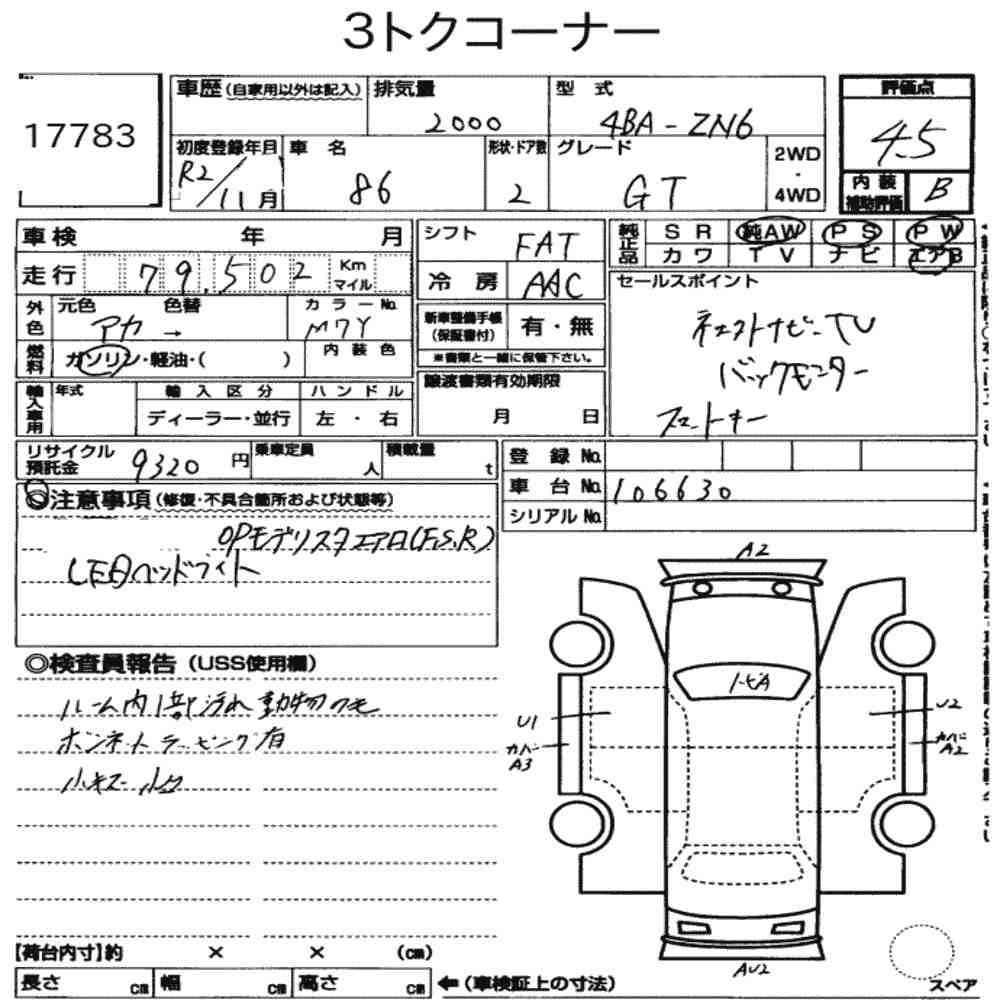 3トクコーナー
17783
車歴 (自家用以外は記入) 排気量 2000
型式 4BA-ZN6
評価点 4.5
初度登録年月 R2/11月
車名 86
形状・ドア数 2
グレード GT
2WD・4WD
内装補助評価 B
車検 年 月
シフト FAT
純正品 SR 純AW PS PW
カワ TV ナビ エアB
走行 79,502 Km マイル
冷房 AAC
セールスポイント
外色 元色 アカ → 色替 カラーNo. M7Y
新車整備手帳(保証書付) 有・無
※書類と一緒に保管下さい。
燃料 ガソリン・軽油・( ) 内装色
バックモニター
輸入車用 年式 輸入区分 ハンドル
ディーラー・並行 左・右
譲渡書類有効期限
月 日
リサイクル預託金 9320円
乗車定員 人
積載量 t
登録No.
車台No. 106630
シリアルNo.
◎注意事項 (修復・不具合箇所および状態等)
OPモデリスタエアロ(F,S,R)
LEDヘッドライト
◎検査員報告 (USS使用欄)
ルーム内1部汚れ 動物の毛
ボンネットラッピング有
小キズ 小凹
A2
U1
カバーA3
U2
カバーA2
AU2
スペア
【荷台内寸】約 × × (cm)
長さ cm 幅 cm 高さ cm ←(車検証上の寸法)